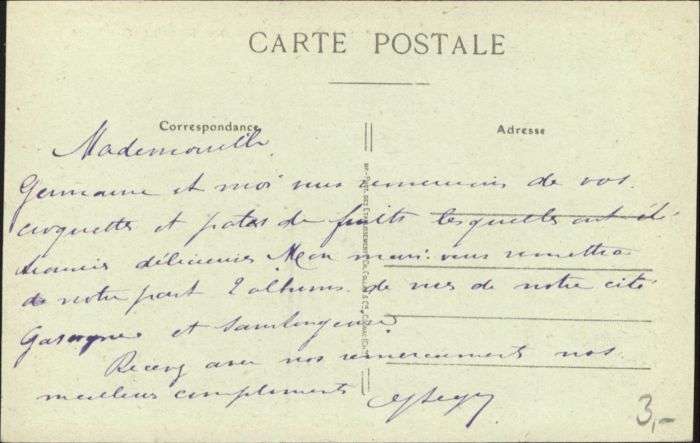 CARTE POSTALE
Correspondance
Adresse
Mademoiselle
Germaine et moi vous remercions de vos
croquettes et pates de fruits lesquelles ont été
délicieuses Mon mari vous remettra
de notre part 2 albums de vues de notre cité
Gasogne et
Recevez avec nos remerciements nos
meilleurs compliments
3,-